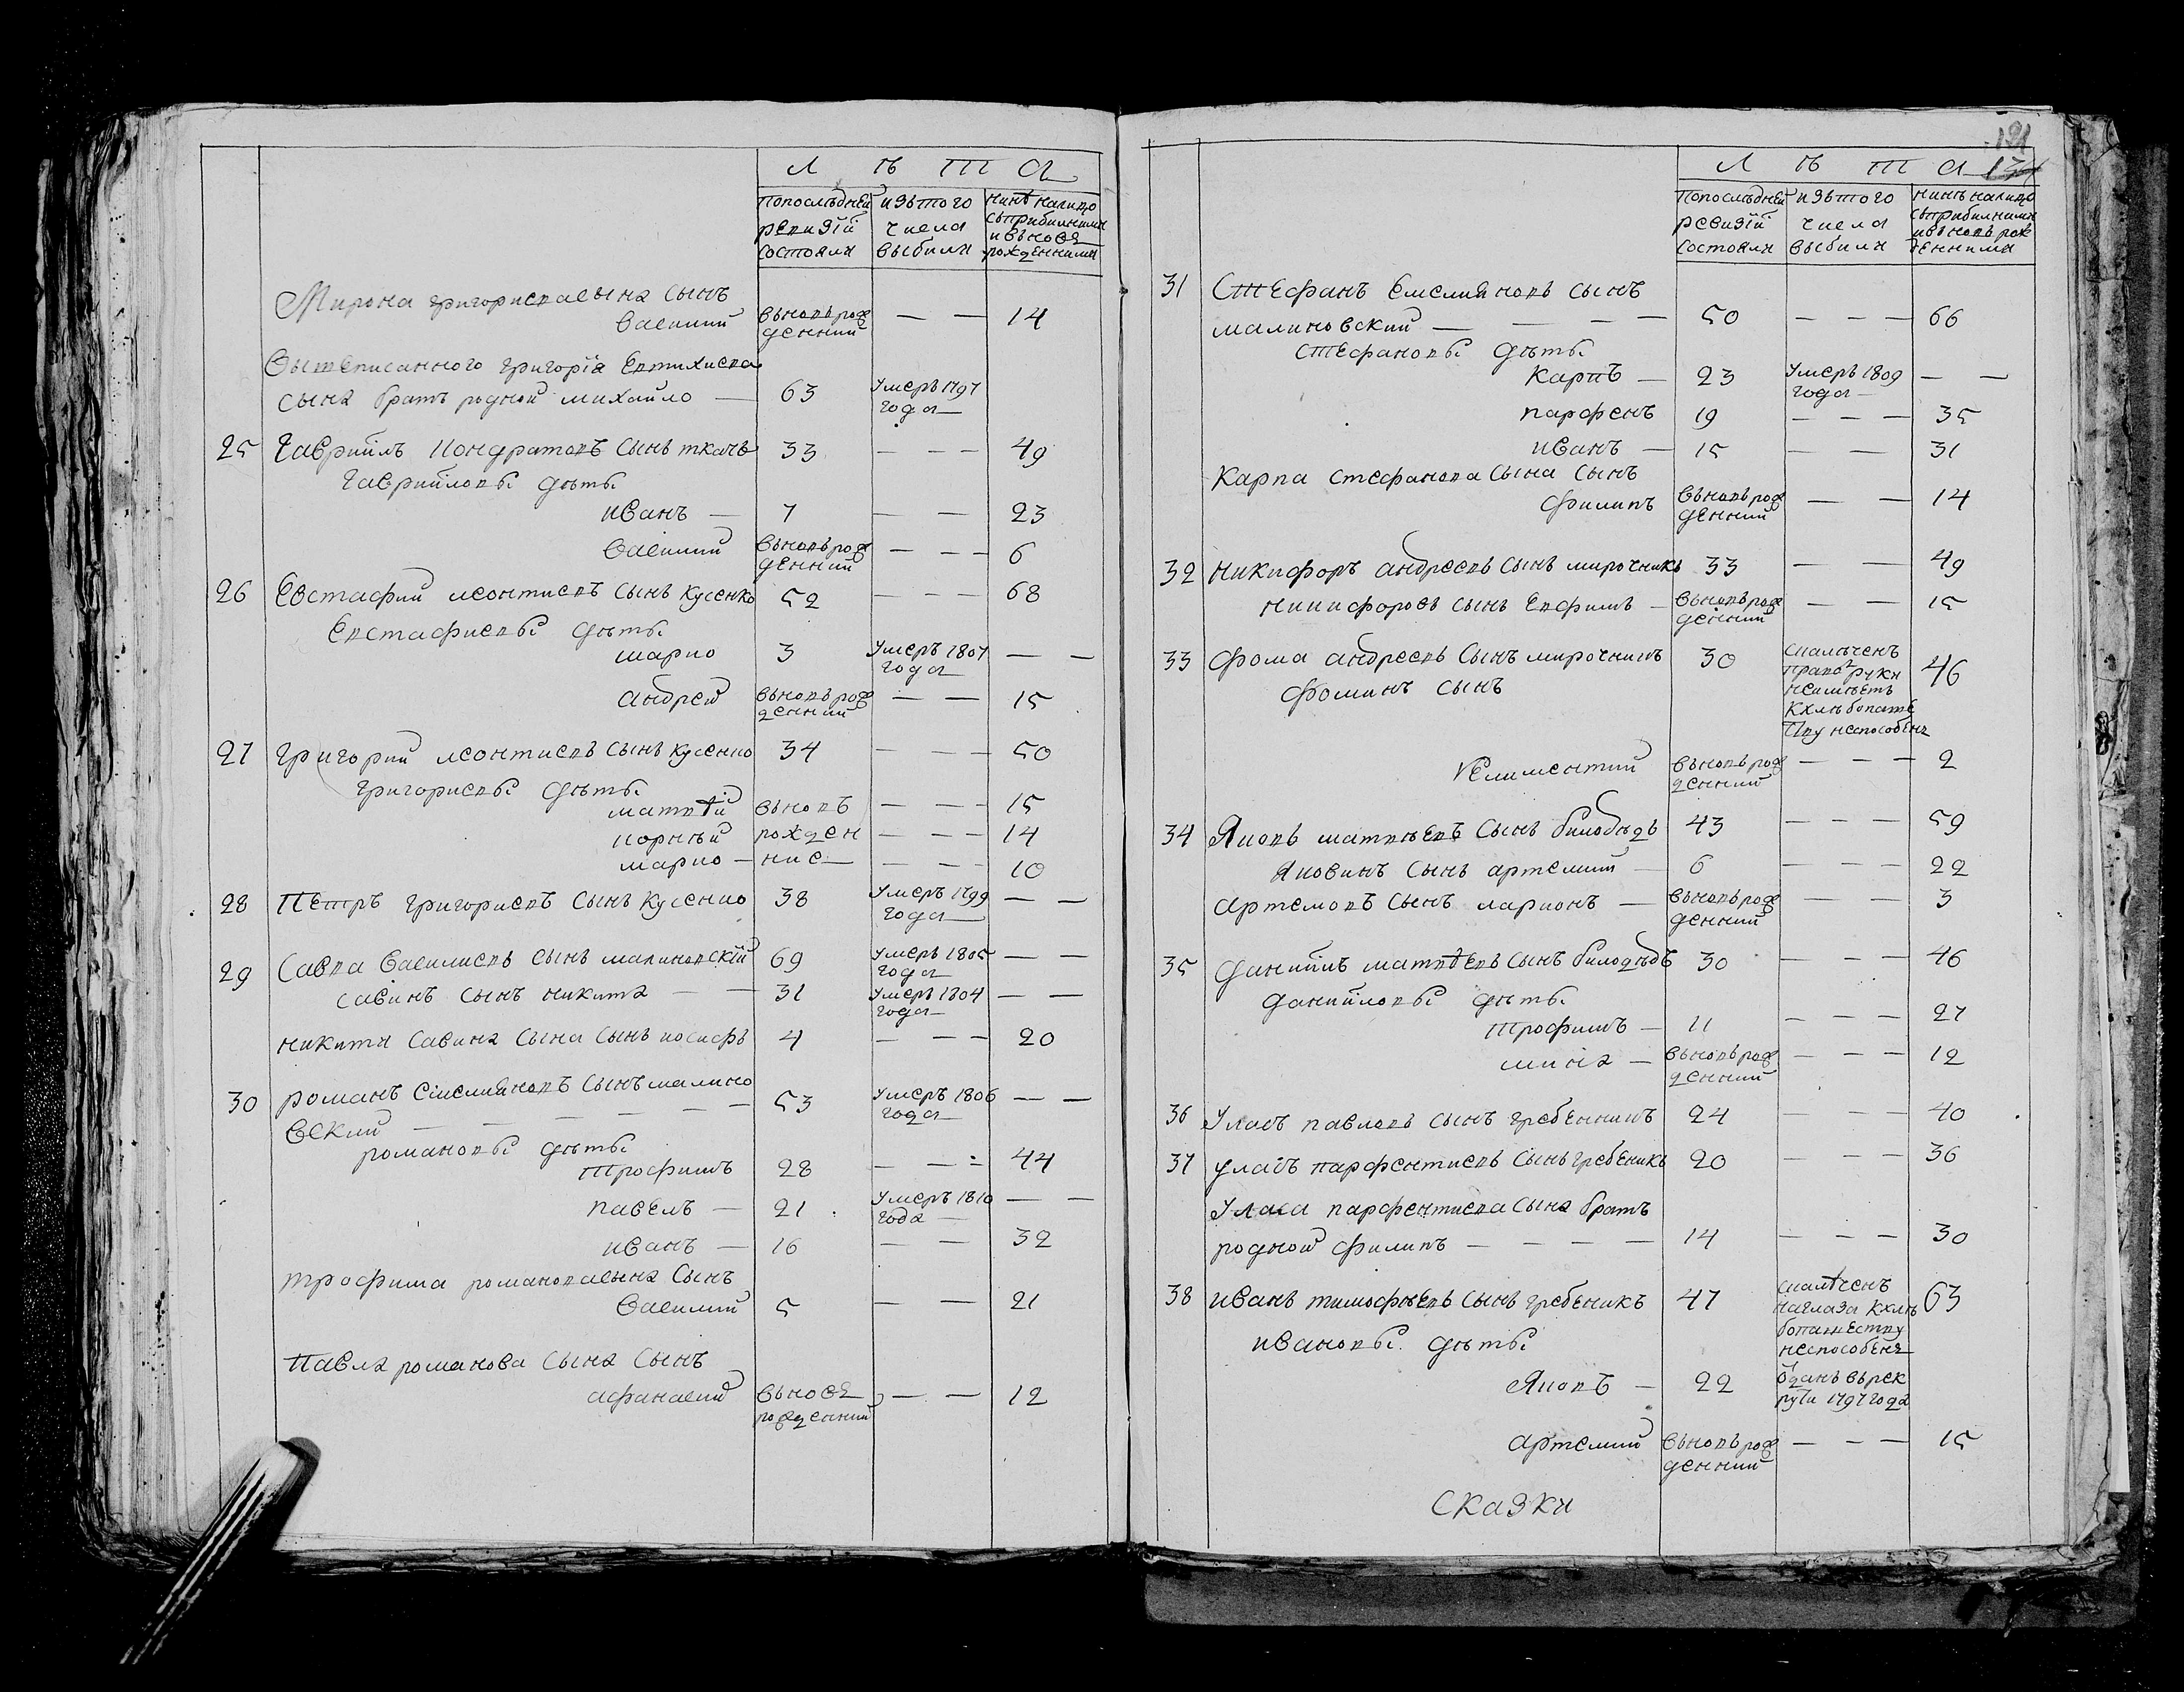 Л ѣ т а
попослѣдней изътого нинѣ налицо
ревизій числа сьприбилними
состояли выбили ивьновѣ
рожденними
Мирона григориевасына сынъ
василий вьновьрож — — 14
денний
Вышеписанного григорія Евтихиева
сына братъ родной михайло — 63 умеръ 1797
года —
25 Гаврийлъ Кондратовъ сынъ ткачъ 33 — — — 49
Гаврийловы дѣты
иванъ — 7 — — 23
василий вьновьрож — — — 6
денний
26 Евстафий леонтиевъ сынъ кусенко 52 — — — 68
Евстафиевы дѣты
марко 3 умеръ 1807 — —
года
андрей вьновьрож — — 15
денний
27 григорий леонтиевъ сынъ кусенко 34 — — — 50
григориевы дѣты
матвѣй вьновъ — — — 15
корнѣй рожден — — — 14
марко — ние — — — 10
28 Петръ григориевъ сынъ кусенко 38 умеръ 1799 — —
года —
29 Савва василиевъ сынъ малиновскій 69 умеръ 1805 — —
года
савинъ сынъ никита — — 31 умеръ 1804 — —
года —
никити савина сына сынъ иосифъ 4 — — — 20
30 романъ Емелияновъ сынъ малино
вский — — — — — 53 умеръ 1806 — —
года —
романовы дѣты
трофимъ 28 — — — 44
павелъ — 21 умеръ 1810 — —
года —
иванъ — 16 — — 32
трофима романовасына сынъ
василий 5 — — 21
Павла романова сына сынъ
афанасий вьновѣ — — 12
рожденний
121
134
Л ѣ т а
попослѣдней изътого нинѣ налицо
ревизій числа сьприбилними
состояли выбили ивьновь рож
денними
31 Стефанъ Емелияновъ сынъ
малиновский — — — — 50 — — — 66
стефановы дѣты
карпъ — 23 умеръ 1809 — —
года —
парфенъ 19 — — — 35
иванъ — 15 — — 31
Карпа стефанова сына сынъ
филипъ вьновьрож — — 14
денний
32 никифоръ андреевъ сынъ мирочникъ 33 — — 49
никифоровъ сынъ Евфимъ — вьновьрож — — 15
денний
33 фома андреевъ сынъ мирочникъ 30 скалѣченъ 46
право рѵки
неимѣетъ
фоминъ сынъ
кхлѣбопаше
ству неспособенъ
Климентий вьновьрож — — — 2
денний
34 Яковъ матвѣевъ сынъ билобѣдъ 43 — — — 59
Яковинъ сынъ артемий — 6 — — — 22
артемовъ сынъ ларионъ — вьновьрож — — 3
денний
35 данийлъ матвѣевъ сынъ билодѣбъ 30 — — — 46
данийловы дѣты
трофимъ — 11 — — — 27
мина — вьновьрож — — — 12
денний
36 Уласъ павловъ сынъ гребенникъ 24 — — — 40
37 уласъ парфентиевъ сынъ гребеникъ 20 — — — 36
Уласа парфентиева сына братъ
родной филипъ — — — — 14 — — — 30
38 иванъ тимофѣевъ сынъ гребеникъ 47 скалѣченъ 63
наглаза кхлѣ
бопашеству
неспособенъ
ивановы дѣты
Яковъ — 22 одданъ врек
рути 1797года
артемий вьновьрож — — — 15
денний
сказки